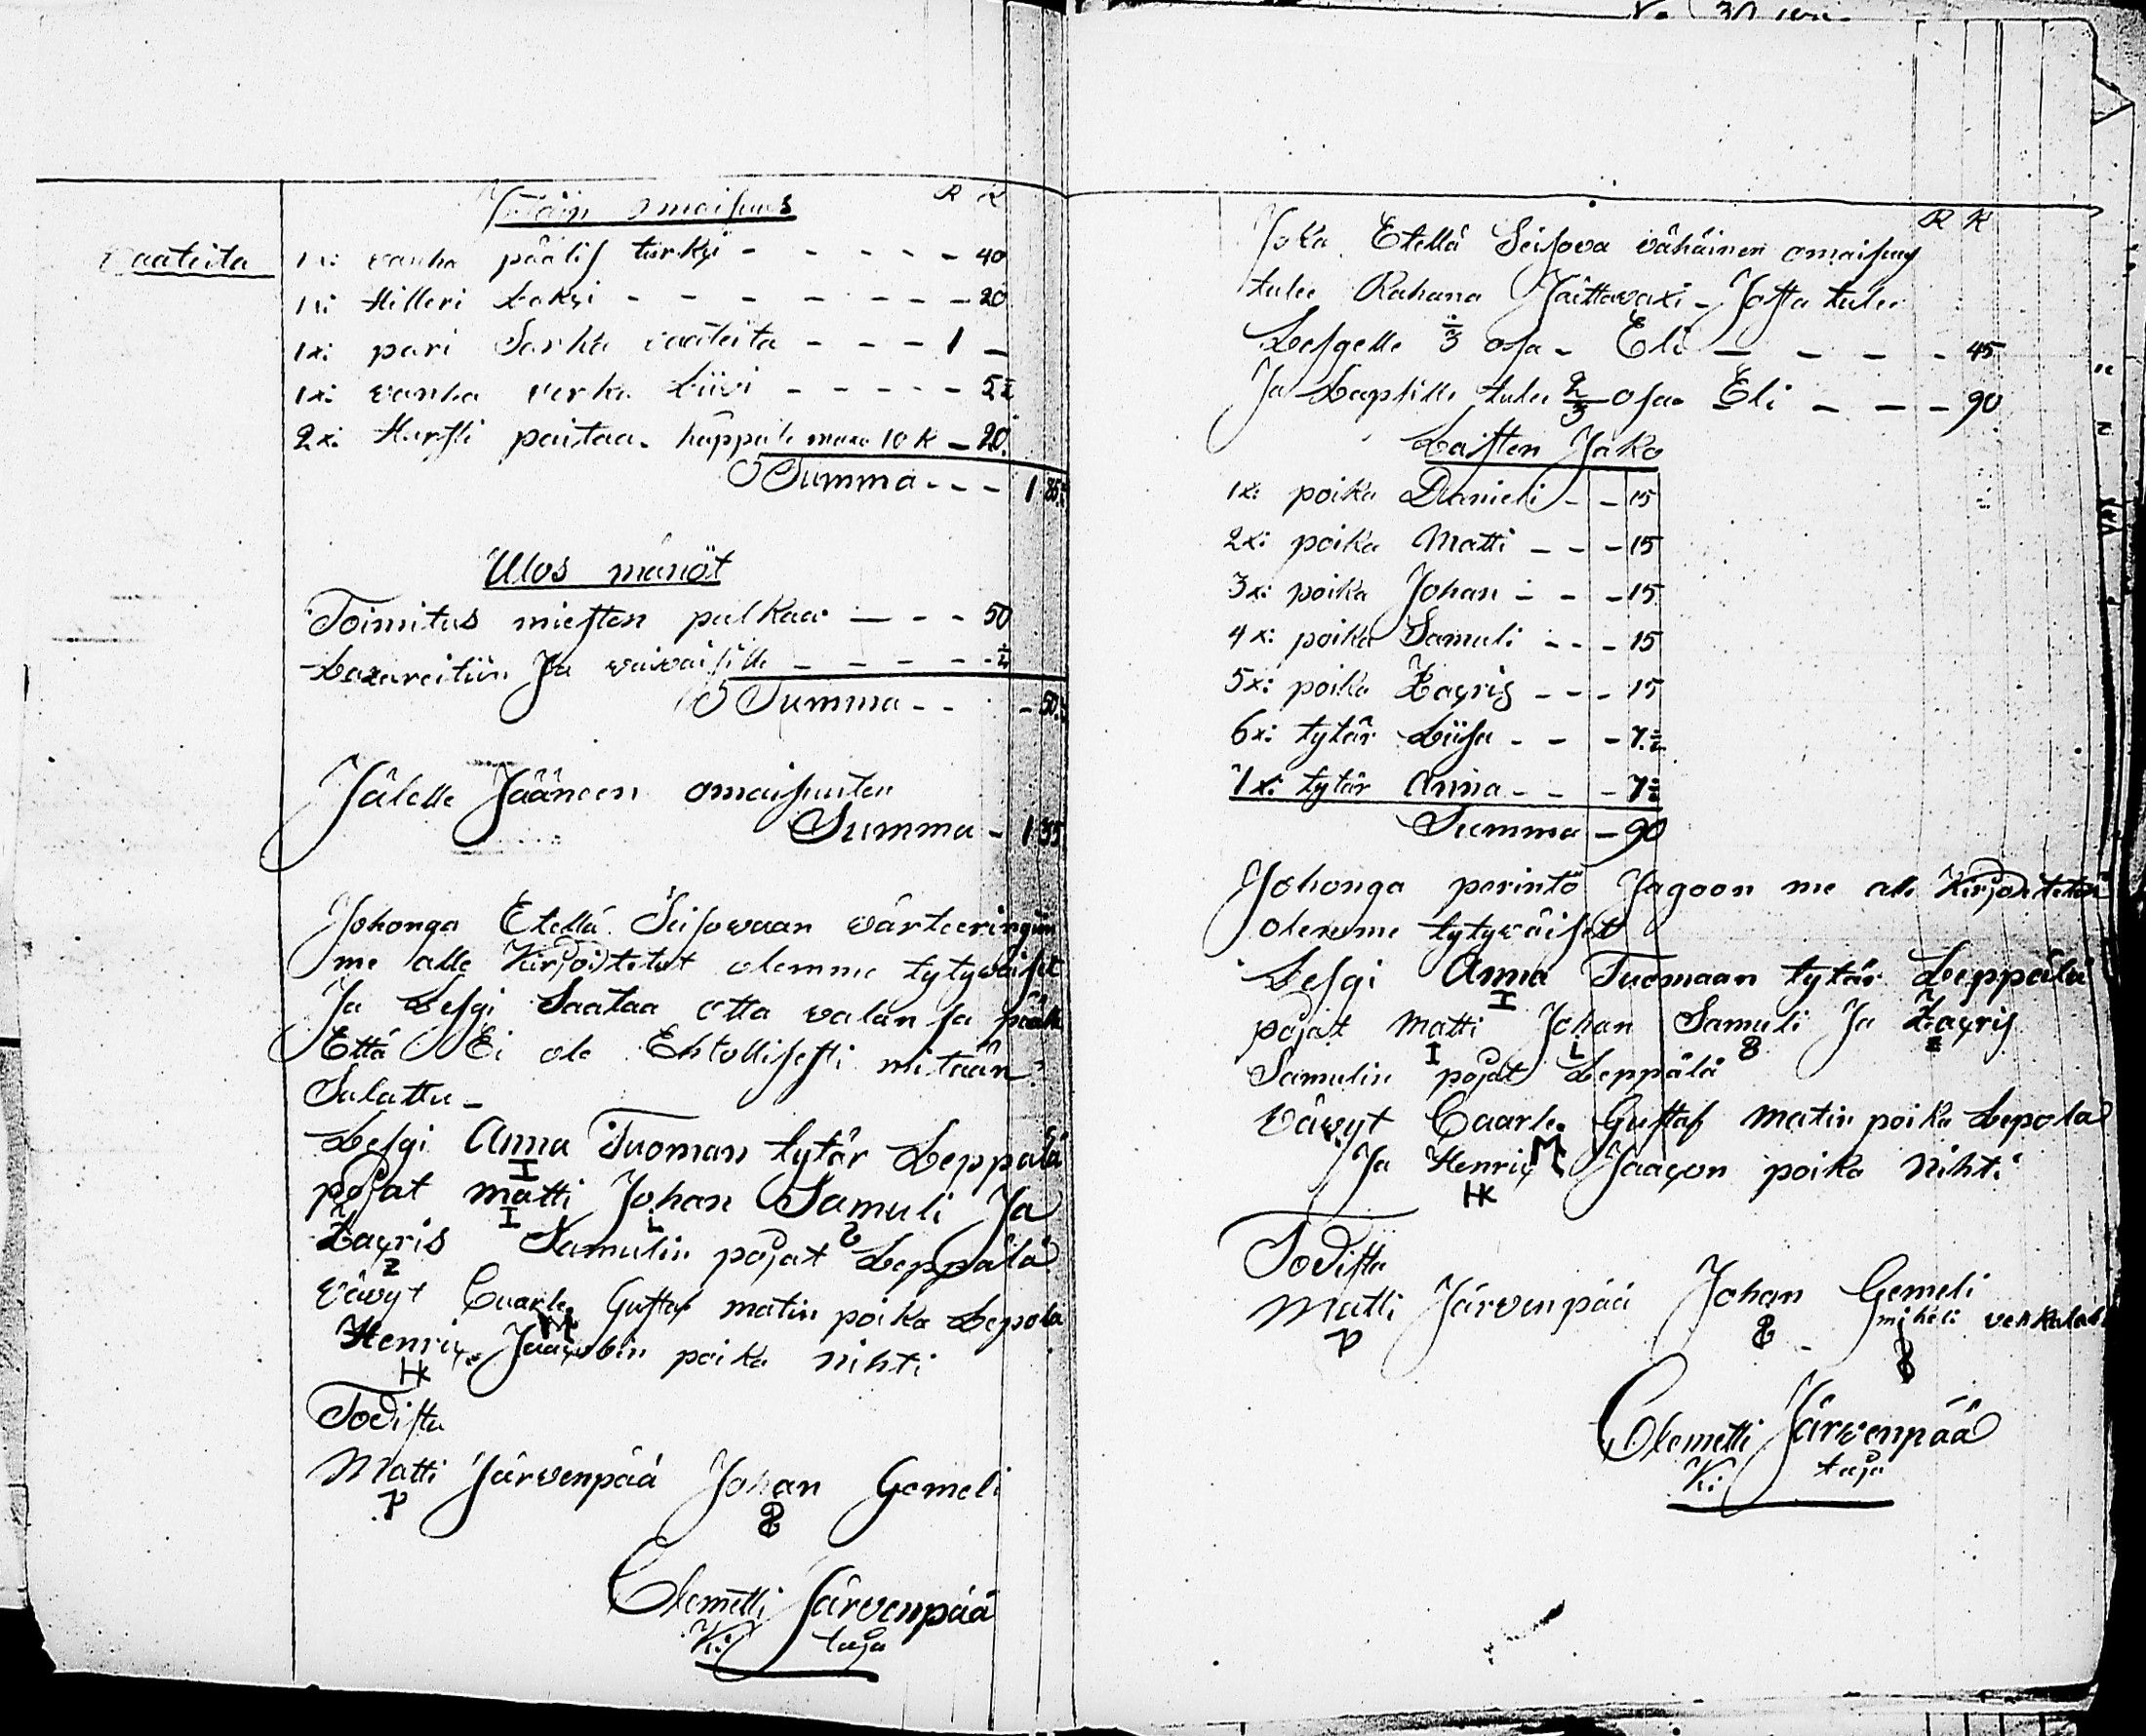 omaisuus R K
Vaateita
1xi vanha päälis turkki - - - - - 40
1xi Hilleri Lakki - - - - - - - 20
1xi pari Sarka vaateita - - - 1 -
1xi vanha verka Liivi - - - - - 5½
2xi Hursti paitaa häppäle maxa 10 K - 20
Summa - - - 1 85½
Ulos mänöt
Toimitus miesten palkaa - - - 50
Lazareitiin Ja vaivaisille - - - - - ½
Summa - - - 50½
Jälelle Jääneen omaisuuten
Summa - 1 35
Johonga Etellä Seisovaan värteeringiin
me alle Kirjoitetut olemme tytyväiset
Ja Lesgi Saataa otta valan sa päälle
Että Ei ole Ehtollisesti mitään
Salattu -
Lesgi Anna Tuoman tytär Leppälä
I
pojat matti Johan Samuli Ja
I L 8
Zaçris Samulin pojat Leppälä
Z
Vävyt Caarle Gustaf matin poika Lepola
M
Henriç Jaaçobin poika nihti
HK
Todista
Matti Järvenpää Johan Gemeli
P
Olemetti Järvenpää
K: taja
R K
Joka Etellä Seisova vähäinen omaisuus
tulee Rahana Jaittavaxi - Josta tulee
Lesgelle ⅓ osa - Eli - - - - 45
Ja Lapsille tulee ⅔ osa Eli - - - 90
Laisten Jako
1xi poika Danieli - - 15
2xi poika Matti - - - 15
3xi poika Johan - - - 15
4xi poika Samuli - - - 15
5xi poika Zaçris - - - 15
6xi tytär Liisa - - - 7½
7xi tytär Anna - - - 7½
Summa - 90
Johonga perintö Jagoon me alle Kirjoitetut
olemme tytyväiset
Lesgi Anna Tuomaan tytär Leppälä
I
pojat Matti Johan Samuli Ja Zaçris
I L 8 Z
Samulin pojat Leppälä
Vävyt Caarle Gustaf Matin poika Lepola
M
Ja Henriç Jaaçon poika Nihti
HK
Todista
Matti Järvenpää Johan Gemeli
P
miheli
Olemetti Järvenpää
K: taja